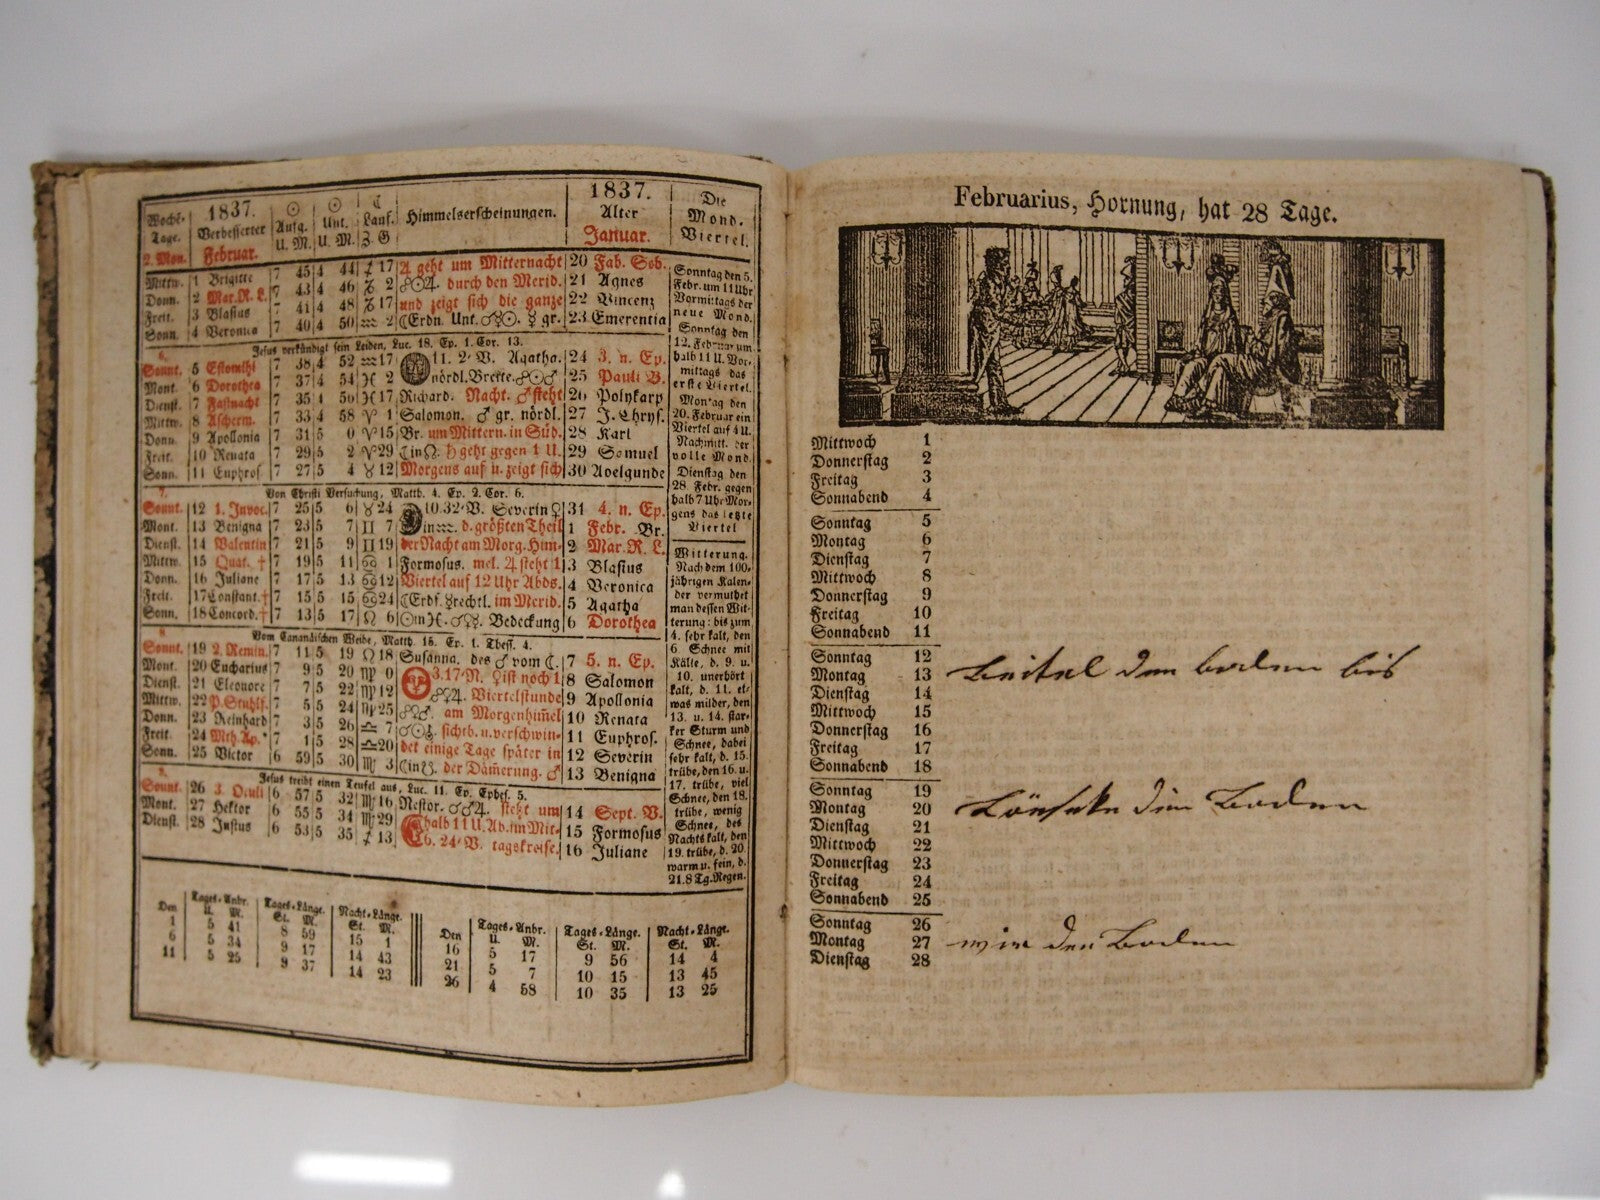 Wochē-Tage.
2. Mon.
1837.
Verbesserter
Februar.
☉ Aufg. U. M.
☉ Unt. U. M.
☾ Lauf. Z. G
Himmelserscheinungen.
1837.
Alter
Januar.
Die Mond-Viertel.
Mittw. 1 Brigitte 7 45 4 44 ♐ 17 ♃ geht um Mitternacht 20 Fab. Seb.
Donn. 2 Mar. R. L. 7 43 4 46 ♑ 2 ☍☉♃. durch den Merid. 21 Agnes
Freit. 3 Blasius 7 41 4 48 ♑ 17 und zeigt sich die ganze 22 Vincenz
Sonn. 4 Veronica 7 40 4 50 ♒ 2 ☾Erdn. Unt. gr. 23 Emerentia
6. Jesus verkündigt sein Leiden, Luc. 18. Ep. 1. Cor. 13.
Sonnt. 5 Estomihi 7 38 4 52 ♒ 17 11. 2' V. Agatha. 24 3. n. Ep.
Mont. 6 Dorothea 7 37 4 54 ♓ 2 nördl. Breite. 25 Pauli B.
Dienst. 7 Fastnacht 7 35 4 56 ♓ 17 Richard. Nacht. ♂ steht 26 Polykarp
Mittw. 8 Ascherm. 7 33 4 58 ♈ 1 Salomon. ♂ gr. nördl. 27 J. Chrys.
Donn. 9 Apollonia 7 31 5 0 ♈ 15 Br. um Mittern. in Süd. 28 Karl
Freit. 10 Renata 7 29 5 2 ♈ 29 ☾in☊. ♄ geht gegen 1 U. 29 Samuel
Sonn. 11 Euphros 7 27 5 4 ♉ 12 Morgens auf u. zeigt sich 30 Adelgunde
7. Von Christi Versuchung, Matth. 4. Ep. 2. Cor. 6.
Sonnt. 12 1. Invoc. 7 25 5 6 ♉ 24 10. 32' V. Severin ♀ 31 4. n. Ep.
Mont. 13 Benigna 7 23 5 7 ♊ 7 in ♒. d. größten Theil 1 Febr. Br.
Dienst. 14 Valentin 7 21 5 9 ♊ 19 der Nacht am Morg. Him- 2 Mar. R. L.
Mittw. 15 Quat. † 7 19 5 11 ♋ 1 Formosus. mel. ♃ steht 1 3 Blasius
Donn. 16 Juliane 7 17 5 13 ♋ 12 Viertel auf 12 Uhr Abds. 4 Veronica
Freit. 17 Constant. † 7 15 5 15 ♋ 24 ☾Erdf. ☿ rechtl. im Merid. 5 Agatha
Sonn. 18 Concord. † 7 13 5 17 ♌ 6 ☉in♓. Bedeckung 6 Dorothea
8. Vom Cananäischen Weibe, Matth. 15. Ep. 1. Thess. 4.
Sonnt. 19 2. Remin. 7 11 5 19 ♌ 18 Susanna. des ♂ vom ☾. 7 5. n. Ep.
Mont. 20 Eucharius 7 9 5 20 ♍ 0 3. 17' N. ♀ ist noch 1 8 Salomon
Dienst. 21 Eleonore 7 7 5 22 ♍ 12 Viertelstunde 9 Apollonia
Mittw. 22 P. Stuhlf. 7 5 5 24 ♍ 25 am Morgenhim̄el 10 Renata
Donn. 23 Reinhard 7 3 5 26 ♎ 7 sichtb. u. verschwin- 11 Euphros.
Freit. 24 Mth. Ap. 7 1 5 28 ♎ 20 det einige Tage später in 12 Severin
Sonn. 25 Victor 6 59 5 30 ♏ 3 ☾in☋. der Däm̄erung. ♂ 13 Benigna
9. Jesus treibt einen Teufel aus, Luc. 11. Ep. Ephes. 5.
Sonnt. 26 3. Oculi 6 57 5 32 ♏ 16 Nestor. steht um 14 Sept. V.
Mont. 27 Hektor 6 55 5 34 ♏ 29 halb 11 U. Ab. im Mit- 15 Formosus
Dienst. 28 Justus 6 53 5 35 ♐ 13 6. 24' V. tagskreise. 16 Juliane
Sonntag den 5.
Febr. um 11 Uhr
Vormittags der
neue Mond.
Sonntag den
12. Februar um
halb 11 U. Vor-
mittags das
erste Viertel.
Montag den
20. Februar ein
Viertel auf 4 U.
Nachmitt. der
volle Mond.
Dienstag den
28. Febr. gegen
halb 7 Uhr Mor-
gens das letzte
Viertel
Witterung.
Nach dem 100-
jährigen Kalen-
der vermuthet
man dessen Wit-
terung: bis zum
4. sehr kalt, den
6 Schnee mit
Kälte, d. 9. u.
10. unerhört
kalt, d. 11. et-
was milder, den
13. u. 14. star-
ker Sturm und
Schnee, dabei
sehr kalt, d. 15.
trübe, den 16. u.
17. trübe, viel
Schnee, den 18.
trübe, wenig
Schnee, des
Nachts kalt, den
19. trübe, d. 20.
warm u. fein, d.
21. 8 Tg. Regen.
Den Tages-Anbr. U. M. Tages-Länge. St. M. Nacht-Länge. St. M.
1 5 41 8 59 15 1
6 5 34 9 17 14 43
11 5 25 9 37 14 23
Den Tages-Anbr. U. M. Tages-Länge. St. M. Nacht-Länge. St. M.
16 5 17 9 56 14 4
21 5 7 10 15 13 45
26 4 58 10 35 13 25
Februarius, Hornung, hat 28 Tage.
Mittwoch 1
Donnerstag 2
Freitag 3
Sonnabend 4
Sonntag 5
Montag 6
Dienstag 7
Mittwoch 8
Donnerstag 9
Freitag 10
Sonnabend 11
Sonntag 12
Montag 13 den boden bis
Dienstag 14
Mittwoch 15
Donnerstag 16
Freitag 17
Sonnabend 18
Sonntag 19
Montag 20 Boden
Dienstag 21
Mittwoch 22
Donnerstag 23
Freitag 24
Sonnabend 25
Sonntag 26
Montag 27 den Boden
Dienstag 28